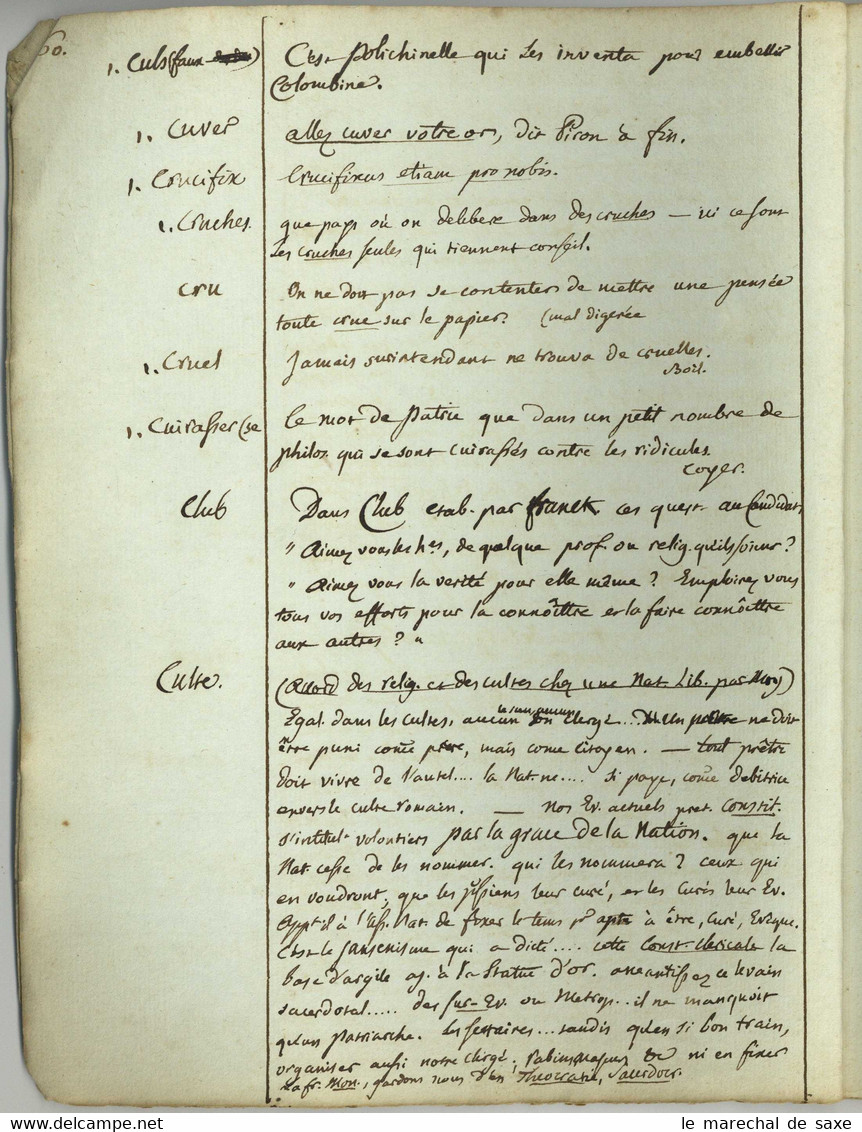 60.
1. Culs (faux
C'est Polichinelle qui les inventa pour embellir
Colombine.
1. Cuver
allez cuver votre or, dit Piron à fin.
1. Crucifix
Crucifixus etiam pro nobis.
1. Cruches.
que pays où on delibere dans des cruches — ici ce sont
les cruches seules qui tiennent conseil.
Cru
On ne doit pas se contenter de mettre une pensée
toute crue sur le papier. (mal digerée
1. Cruel
Jamais surintendant ne trouva de cruelles.
Boil.
1. Cuirasser (se
Le mot de Patrie que dans un petit nombre de
philos. qui se sont cuirassés contre les ridicules.
Coyer.
Club
Dans Club etab. par franck. ces quest. au Candidat
" Aimez vous les hes, de quelque prof. ou relig. qu'ils soient?
" Aimez vous la verité pour elle même? Emploirez vous
tous vos efforts pour la connoître et la faire connoître
aux autres? "
Culte.
(Accord des relig. et des cultes chez une Nat. Lib. par Moy)
Egal. dans les cultes, aucun clergé... Un prêtre ne doit
être puni come prêtre, mais come citoyen. — tout prêtre
doit vivre de l'autel.... la Nat. ne.... si paye, come debitrice
envers le culte romain. — Nos Ev. actuels pret. Constit.
s'intitul. volontiers par la grace de la Nation. que la
Nat. cesse de les nommer. qui les nommera? ceux qui
en voudront, que les p'ssiens leur curé, et les Curés leur Ev.
App't il à l'Ass. Nat. de fixer le tems pr à être, Curé, Evêque.
C'est le Jansenisme qui a dicté.... cette Const. clericale la
base d'argile aj. à la Statue d'or. aneantissez ce levain
sacerdotal..... des sur-Ev. ou Metrop... il ne manquoit
qu'un Patriarche. les sectaires... tandis qu'en si bon train,
organiser aussi notre clergé, rabins ni en fixer
la fr. Mon., gardons nous d'en Theocratie, Sacerdoce.
le marechal de saxe